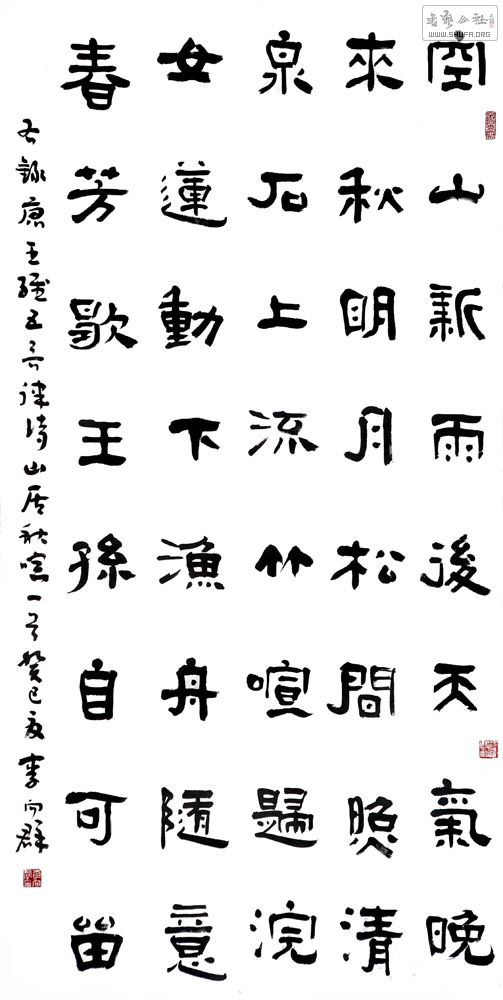 空山新雨後天氣晚
來秋明月松間照清
泉石上流竹喧歸浣
女蓮動下漁舟隨意
春芳歇王孫自可留
右錄唐王維五言律詩山居秋暝一首癸巳夏李向群
书艺公社
WWW.SHUFA.ORG